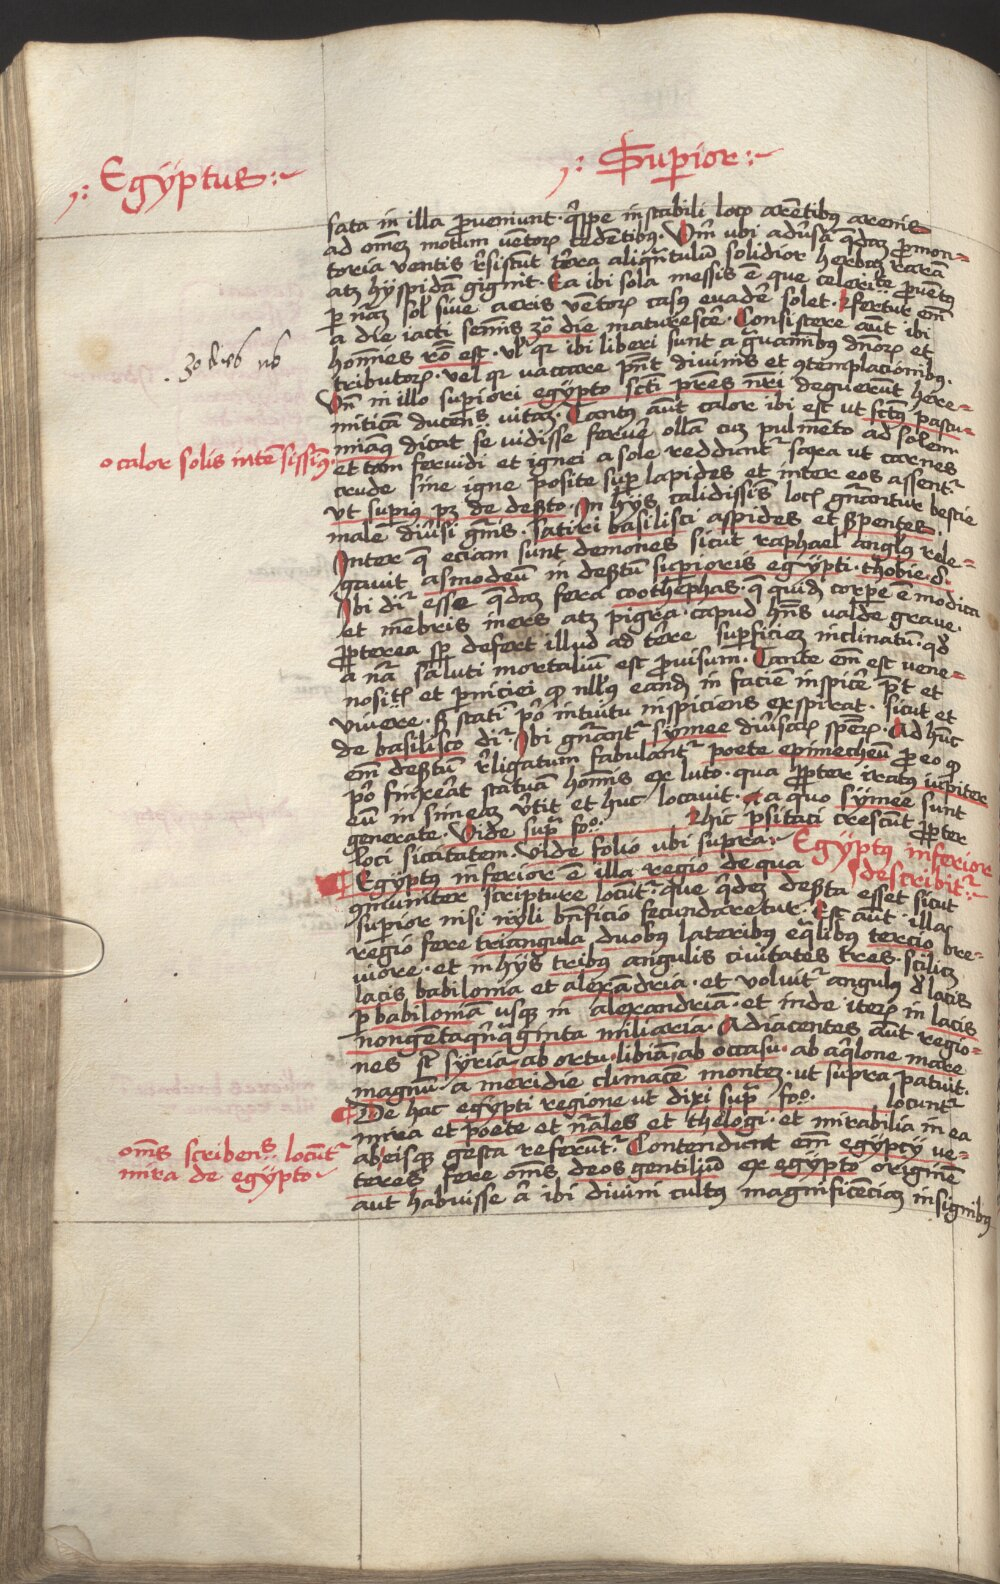 Egÿptus
Superior
sata in illa proveniunt · quippe instabili loco arentibus arenis
ad omnem motum ventorum cedentibus · Verum ubi adversa quedam promon=
toria ventis resistunt terra aliquantulum solidior herbam raram
atque hyspidam gignit · Ea ibi sola messis est que celeriter proventus
per naturam soli sive aeris ventorum casus evadere solet · Refertur enim
a die iacti seminis 30 die maturescere · Consistere autem ibi
homines ratio est · vel quia ibi liberi sunt a gravaminibus dominorum et
tributorum · vel quia vaccare possunt divinis et contemplacionibus ·
Unde in illo superiori egypto sancti patres nostri deguerunt here=
miticam ducentes vitam · Tantus autem calor ibi est ut sanctus pascu=
miaque dicat se vidisse fervere ollam cum pulmento ad solem
et tam fervidi et ignei a sole redduntur saxa ut carnes
crude sine igne posite super lapides et inter eos assentur
ut superius patet de deserto · In hÿs calidissimis locis generantur bestie
male diversi generis · satiri basilisci aspides et serpentes
Inter que eciam sunt demones sicut raphael angelus rele=
gavit asmodeum in desertum superioris egÿpti · thobie · 8 ·
Ibi dicitur esse quedam fera coothephas · que quidem corpore est modica
et membris iners atque pigra · capud habens valde grave ·
propterea semper defert illud ad terre superficiem inclinatum · quod
a natura saluti mortalium est provisum · Tante enim est vene=
nositatis et perniciei quod nullus eandem in faciem inspicere potest et
vivere · Sed statim primo intuitu inspiciens exspirat · sicut et
de basilisco dicitur · Ibi generantur symee diversarum specierum · Ad hunc
enim desertum religatum fabulantur poete epimecheum pro eo quod
primo finxerat statuam hominis ex luto · qua propter iratus iupiter
eum in simeam vertit et huc locavit · a quo symee sunt
generate · Vide supra folio · Hic psitaci crescunt propter
loci siccitatem · vide folio ubi supra
Egyptus inferior
describitur
Egÿptus inferior est illa regio de qua
communiter scripture locuntur · que quidem deserta esset sicut
superior nisi nÿli beneficio fecundaretur · Est autem illa
regio fere triangula duobus lateribus equalibus tercio bre=
viore · et in hÿs tribus angulis civitates tres · scilicet
lacis babilonia et alexandria · et volvitur angulus de lacis
per babiloniam usque in alexandriam · et inde iterum in lacis
nongentaquinquaginta miliaria · Adiacentes autem regio=
nes sunt syria · ab ortu · libia · ab occasu · ab aquilone mare
magnum · a meridie climace montem · ut supra patuit ·
De hac egypti regione ut dixi supra folio · locuntur
mirea et poete et naturales et theologi · et mirabilia in ea
ab eisque gesta referuntur · Contendunt enim egypcy ve=
teres fere omnes deos gentilium ex egypto originem
aut habuisse aut ibi divini cultus magnificenciam insignibus
calor solis intensissimus
omnes scribentes locuntur
mira de egÿpto